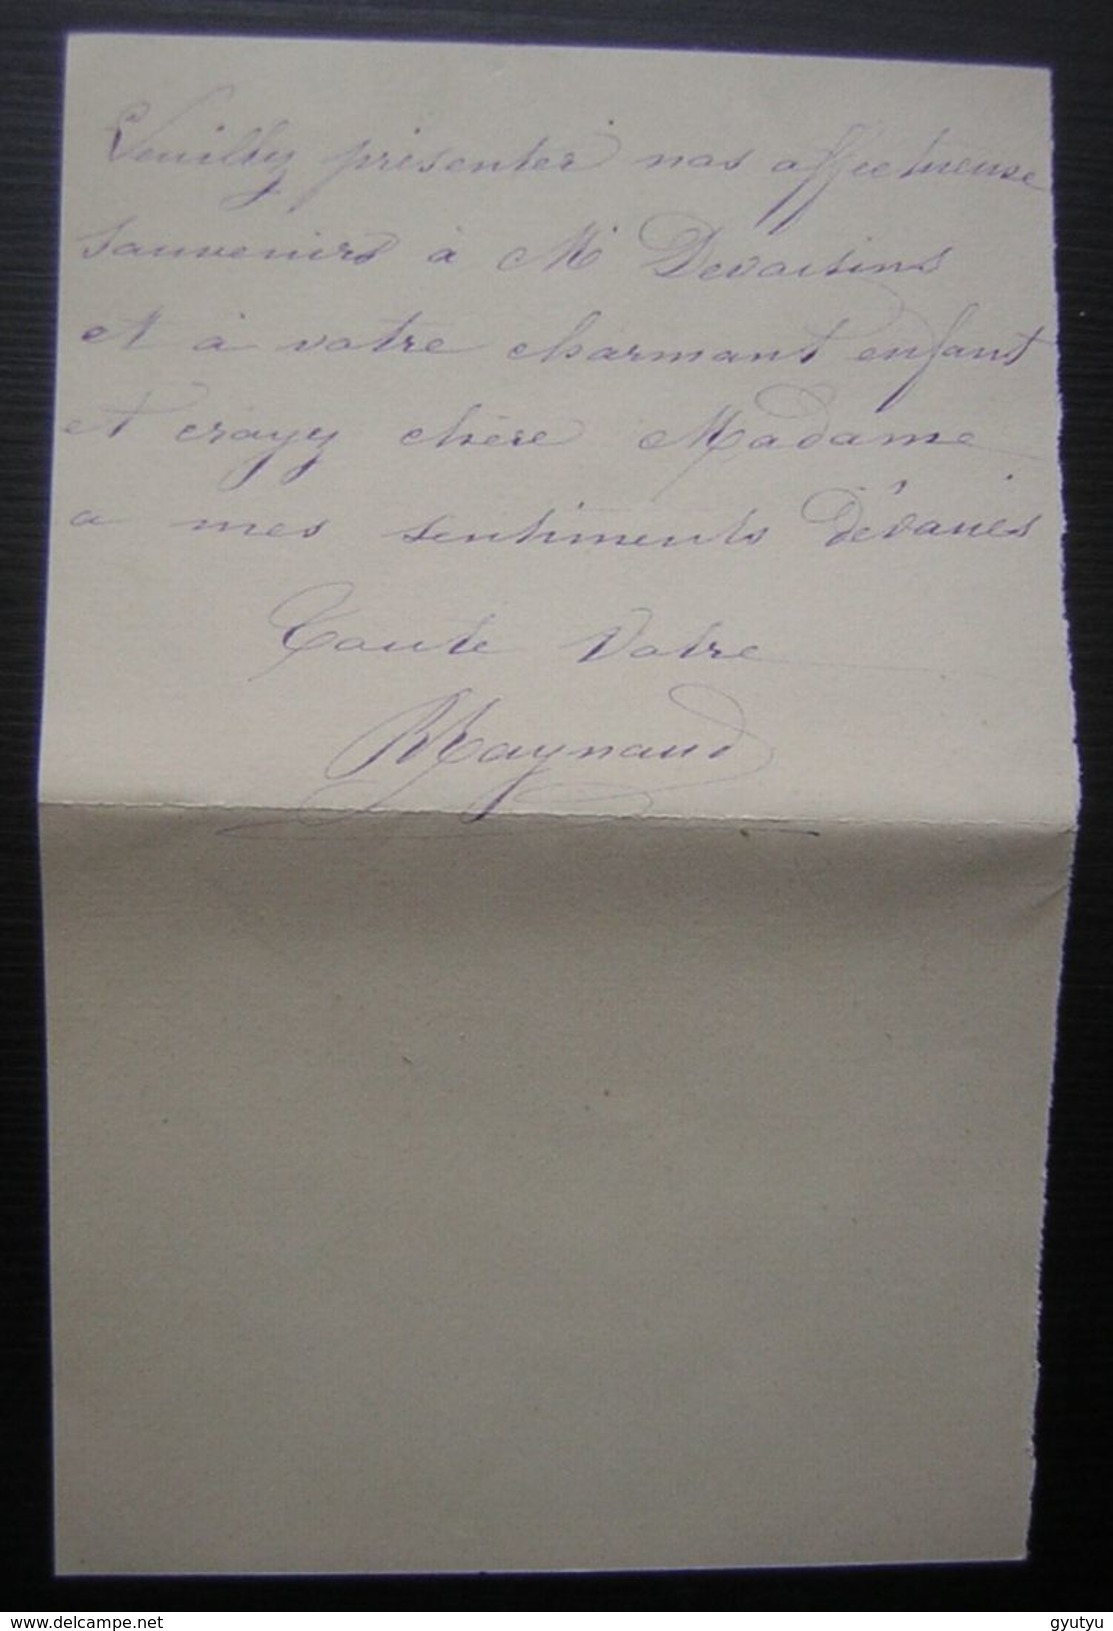 Veuillez présenter nos affectueuse
souvenirs à Mr Devoisins
et à votre charmant enfant
et croyez chère Madame
a mes sentiments dévoués
Toute Votre
M Raynaud
www.delcampe.net
gyutyu